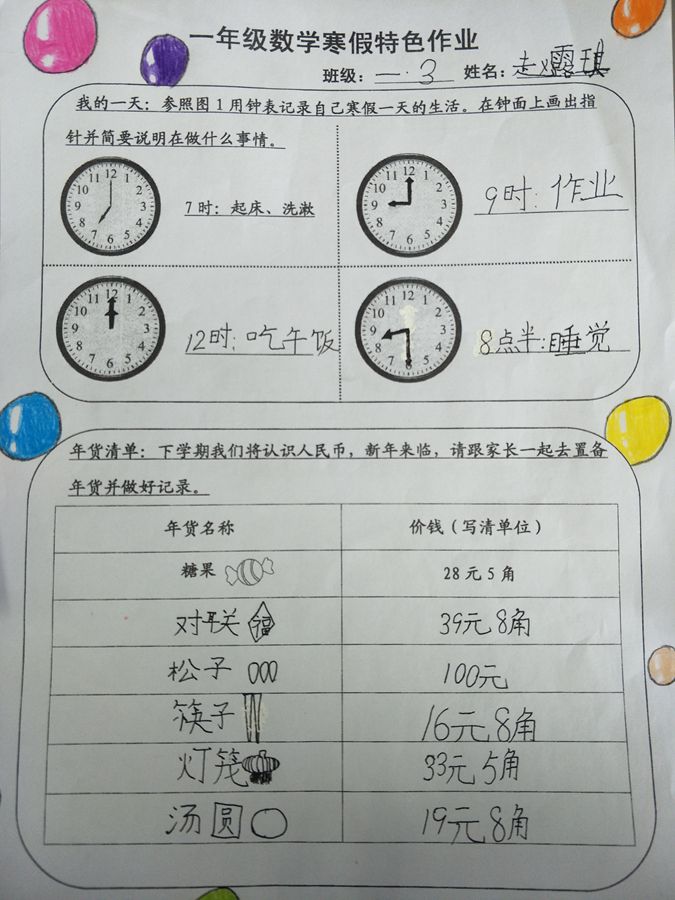 一年级数学寒假特色作业
班级：一.3 姓名：赵露琪
我的一天：参照图1用钟表记录自己寒假一天的生活。在钟面上画出指
针并简要说明在做什么事情。
12 1 2 3 4 5 6 7 8 9 10 11
7时：起床、洗漱
12 1 2 3 4 5 6 7 8 9 10 11
9时：作业
12 1 2 3 4 5 6 7 8 9 10 11
12时：吃午饭
12 1 2 3 4 5 6 7 8 9 10 11
8点半：睡觉
年货清单：下学期我们将认识人民币，新年来临，请跟家长一起去置备
年货并做好记录。
年货名称 价钱（写清单位）
糖果 28元5角
对联 福 39元8角
松子 100元
筷子 16元8角
灯笼 33元5角
汤圆 19元8角